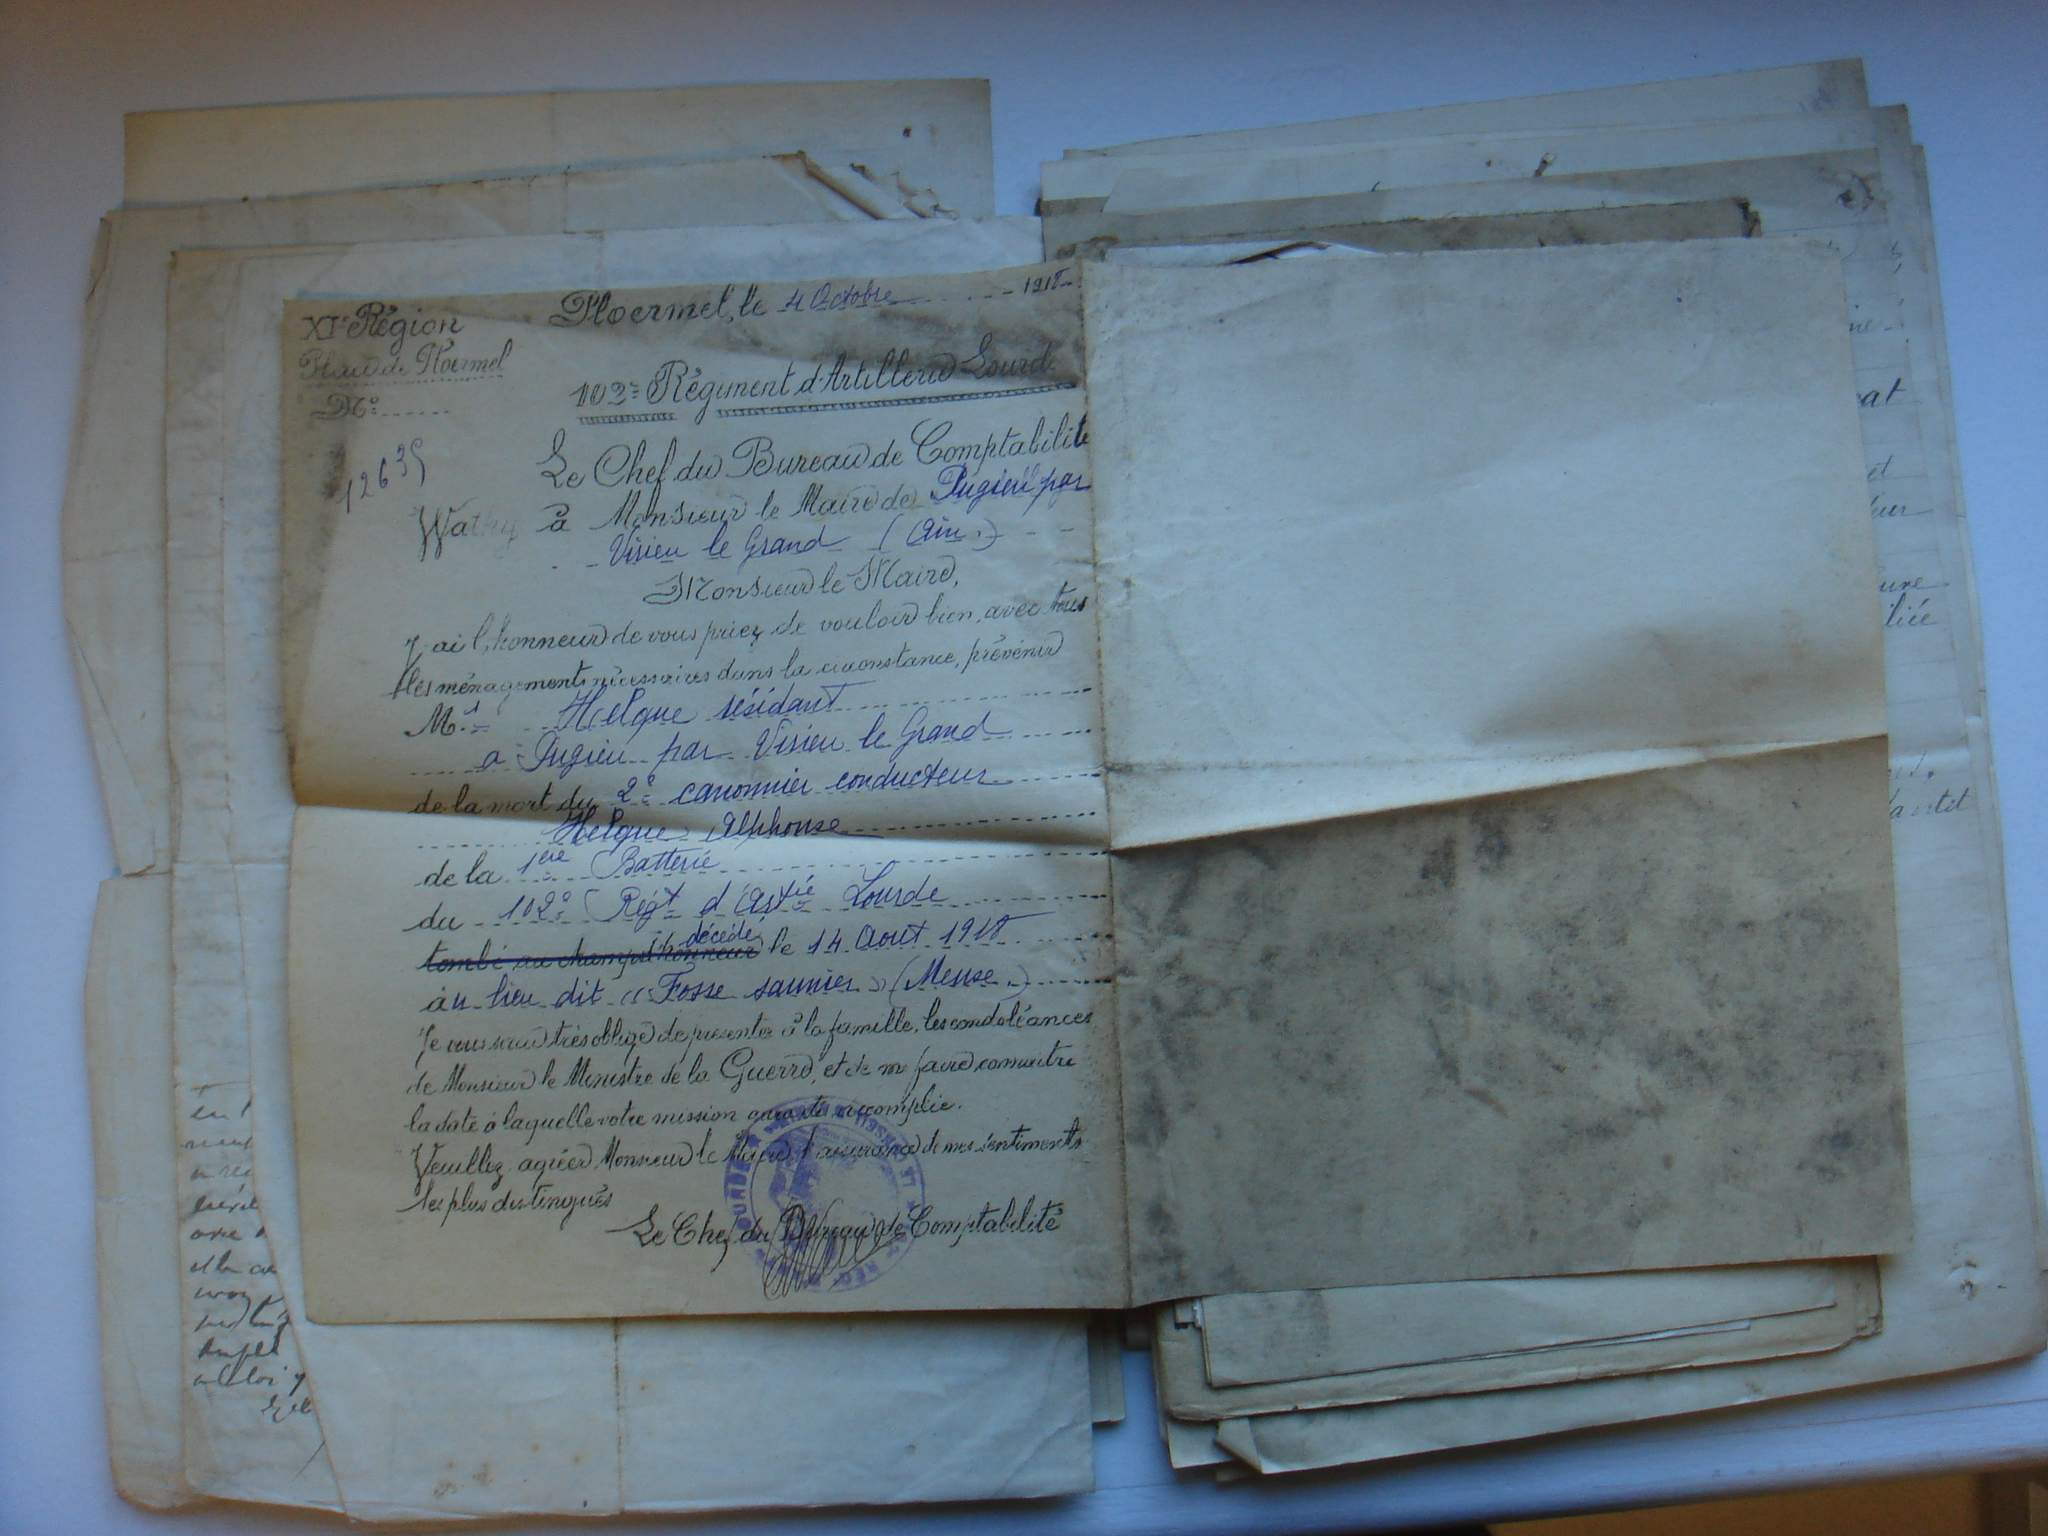 XIe Région
Ploermel, le 4 Octobre 1918
Place de Ploermel
No
102e Régiment d'Artillerie Lourde
12635
Le Chef du Bureau de Comptabilité
Wathy à Monsieur le Maire de Pugieu par
Virieu le Grand (Ain.)
Monsieur le Maire,
J'ai l'honneur de vous priez de vouloir bien, avec tous
les ménagements nécessaires dans la circonstance, prévenir
Mr Helgue résidant
a Pugieu par Virieu le Grand
de la mort du 2e canonnier conducteur
Helgue Alphonse
de la 1ère Batterie
du 102e Régt d'Artie Lourde
décédé
tombé au champ d'honneur le 14 Aout 1918
au lieu dit "Fosse saunier" (Meuse.)
Je vous serai très obligé de présenter à la famille, les condoléances
de Monsieur le Ministre de la Guerre, et de me faire connaitre
la date à laquelle votre mission aura été accomplie.
Veuillez agréer Monsieur le Maire l'assurance de mes sentiments
les plus distingués
Le Chef du Bureau de Comptabilité